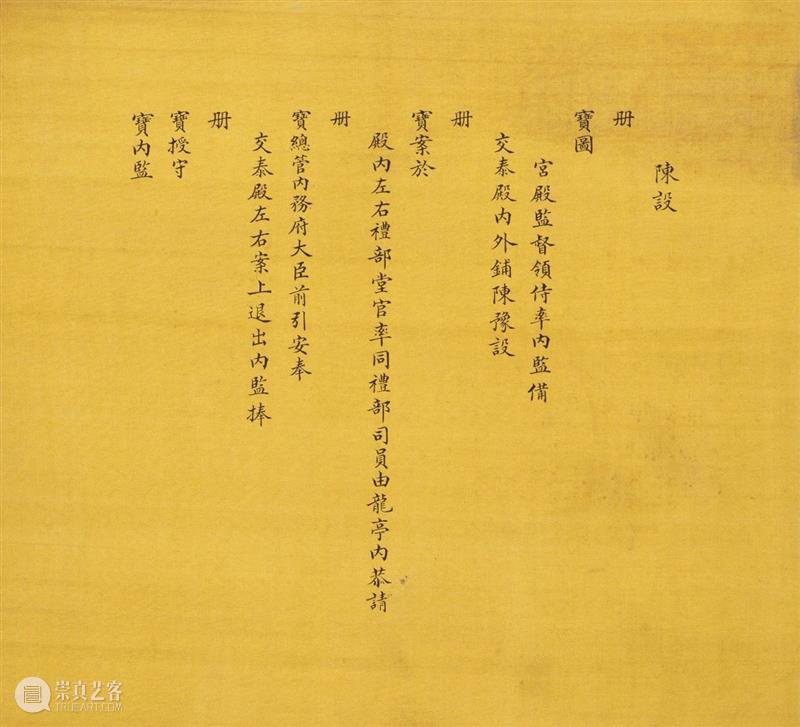 陳設
册
寶圖
宮殿監督領侍率内監備
交泰殿内外鋪陳豫設
册
寶案於
殿内左右禮部堂官率同禮部司員由龍亭内恭請
册
寶總管内務府大臣前引安奉
交泰殿左右案上退出内監捧
册
寶授守
寶内監
崇真艺客
TRUEART.COM